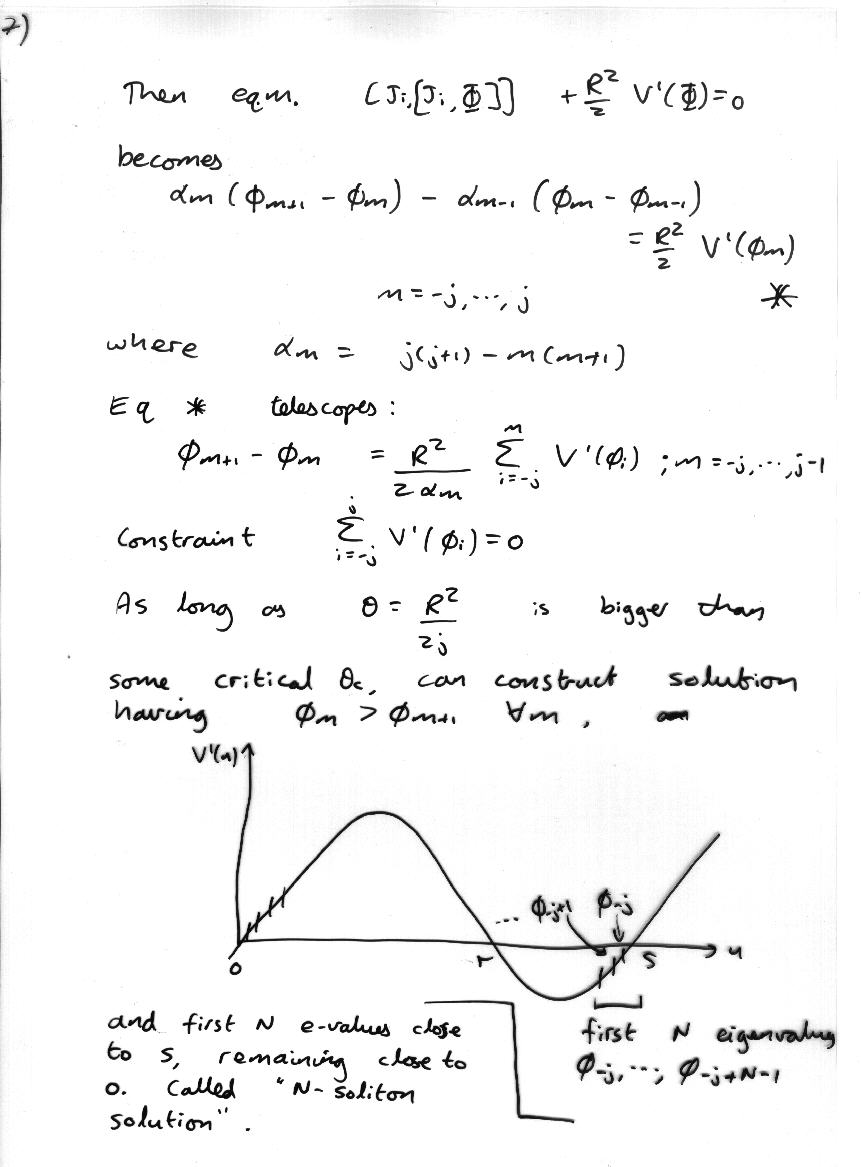 7)
Then eqm. [Ji,[Ji,Φ]] + R²/2 V'(Φ)=0
becomes
αm (ϕm+1 - ϕm) - αm-1 (ϕm - ϕm-1)
= R²/2 V'(ϕm)
m = -j, ..., j *
where αm = j(j+1) - m(m+1)
Eq * telescopes:
ϕm+1 - ϕm = R²/2αm ∑ᵐi=-j V'(ϕi) ; m = -j, ..., j-1
Constraint ∑ʲi=-j V'(ϕi) = 0
As long as θ = R²/2j is bigger than
some critical θc, can construct solution
having ϕm > ϕm+1 ∀m,
V'(u)
... ϕ-j+1 ϕ-j
0 r s u
and first N e-values close
to s, remaining close to
0. Called "N-soliton
solution".
first N eigenvalues
ϕ-j, ..., ϕ-j+N-1